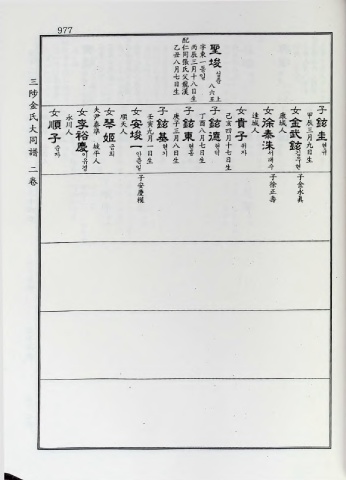 977
三陟金氏大同譜 二卷
聖埈 성준 八六五上
字東一 동일
丙辰三月十八日生
配仁同張氏父龍漢
乙丑八月七日生
子鉉圭 현규
甲辰三月九日生
女金武鉉 김무현 子金永眞
康城人
女徐泰洙 서태수 子徐正壽
達城人
女貴子 귀자
己亥四月十七日生
子鉉德 현덕
丁酉八月七日生
子鉉東 현동
庚子三月八日生
子鉉基 현기
壬寅九月一日生
女安埈一 안준일 子安慶模
順天人
女琴姬 금희
夫尹泰準 坡平人
女李裕慶 이유경
永川人
女順子 순자